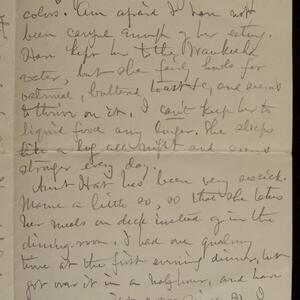 colors. Am afraid I have not
been careful enough of her eating.
Have kept her to the Waukesha
water, but she fairly howls for
oatmeal, buttered toast &c, and seems
to thrive on it. I can't keep her to
liquid food any longer. She sleeps
like a log all night and seems
stronger every day.
Aunt Hat has been very seasick.
Mame a little so, so that she takes
her meals on deck instead of in the
dining-room. I had one qualmy
time at the first evening dinner, but
got over it in a half hour, and have